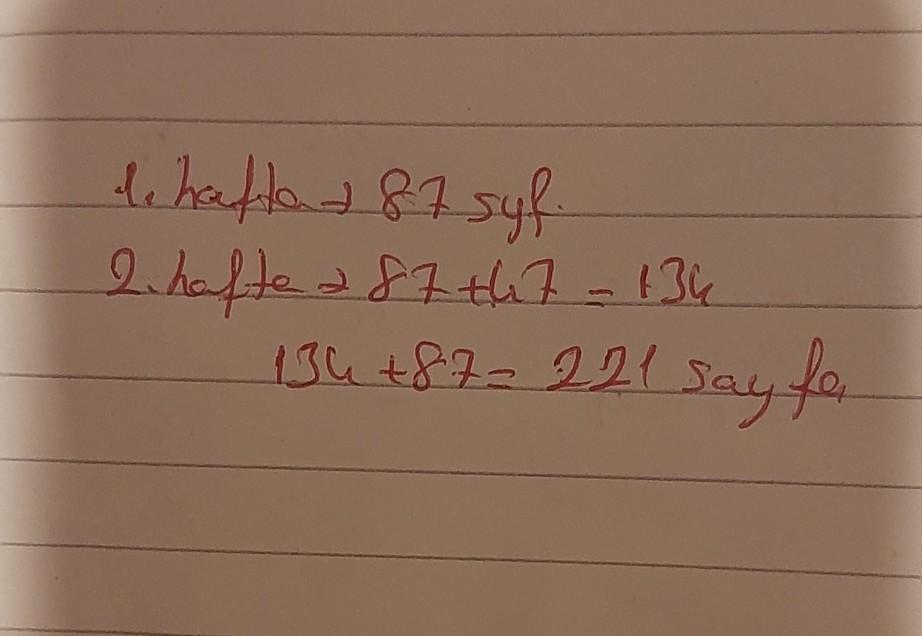 1. hafta → 87 syf.
2. hafta → 87 + 47 = 134
134 + 87 = 221 sayfa